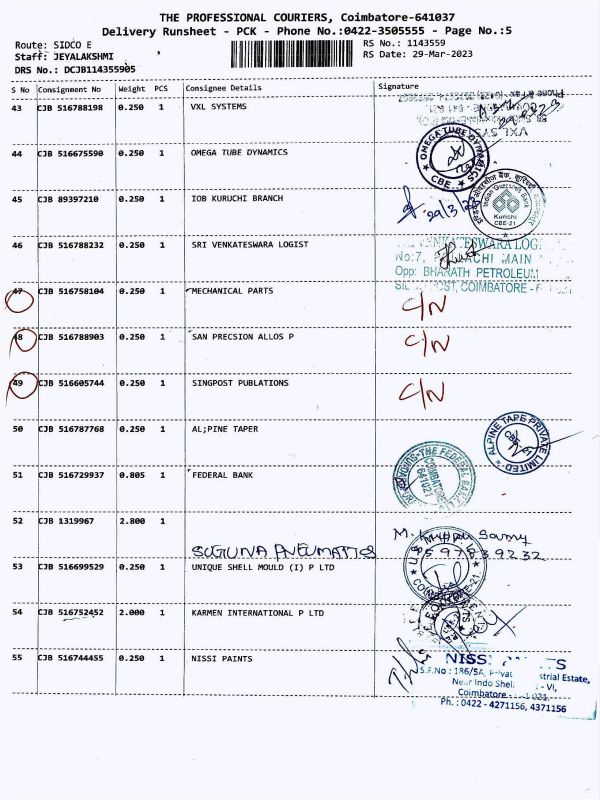 THE PROFESSIONAL COURIERS, Coimbatore-641037
Delivery Runsheet - PCK - Phone No.:0422-3505555 - Page No.:5
Route: SIDCO E
RS No.: 1143559
Staff: JEYALAKSHMI
RS Date: 29-Mar-2023
DRS No.: DCJB114355905
S No Consignment No Weight PCS Consignee Details Signature
43 CJB 516788198 0.250 1 VXL SYSTEMS
44 CJB 516675590 0.250 1 OMEGA TUBE DYNAMICS
OMEGA TUBE DYNAMICS
CBE
45 CJB 89397210 0.250 1 IOB KURUCHI BRANCH
29/3/23
Indian Overseas Bank
Kurichi
CBE-21
46 CJB 516788232 0.250 1 SRI VENKATESWARA LOGIST
VENKATESWARA LOG
No:7, MAIN
Opp: BHARATH PETROLEUM
POST, COIMBATORE - 6
47 CJB 516758104 0.250 1 MECHANICAL PARTS
C/N
48 CJB 516788903 0.250 1 SAN PRECSION ALLOS P
C/N
49 CJB 516605744 0.250 1 SINGPOST PUBLATIONS
C/N
50 CJB 516787768 0.250 1 AL;PINE TAPER
ALPINE TAPE PRIVATE LIMITED
51 CJB 516729937 0.805 1 FEDERAL BANK
THE FEDERAL BANK
COIMBATORE
641021
52 CJB 1319967 2.800 1
SUGUNA PNEUMATICS
53 CJB 516699529 0.250 1 UNIQUE SHELL MOULD (I) P LTD
54 CJB 516752452 2.000 1 KARMEN INTERNATIONAL P LTD
55 CJB 516744455 0.250 1 NISSI PAINTS
S.F.No : 186/5A, Estate,
Near Indo Shel
- VI,
Coimbatore
Ph. : 0422 - 4271156, 4371156